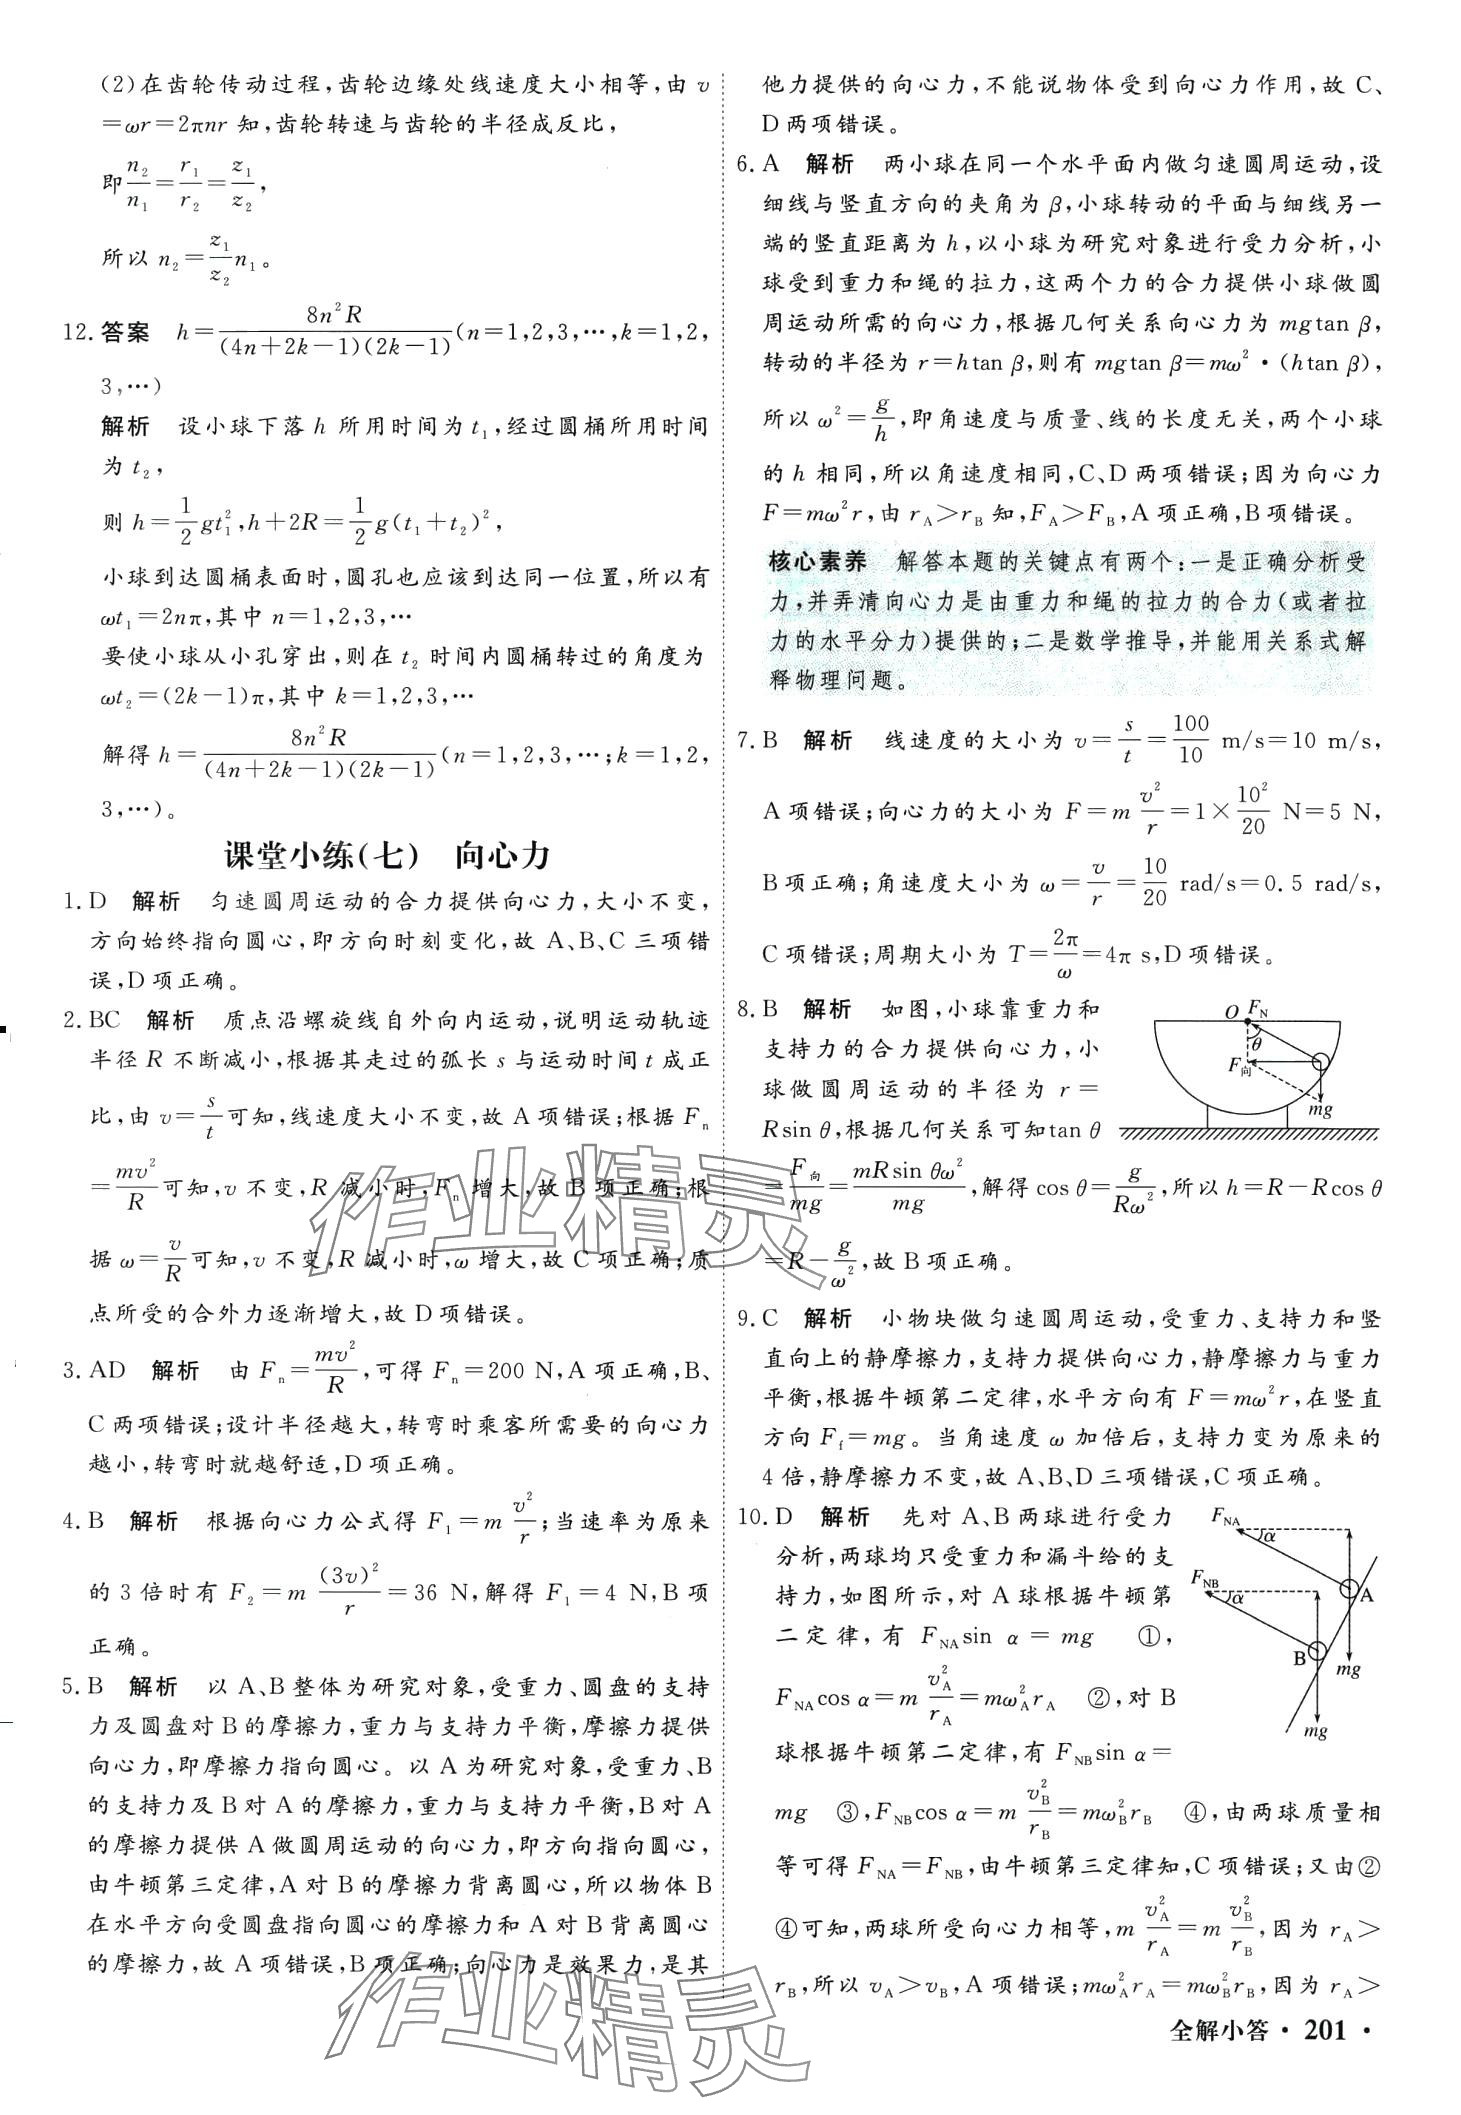 (2)在齿轮传动过程,齿轮边缘处线速度大小相等,由 v
=ωr=2πnr 知,齿轮转速与齿轮的半径成反比,
即n₂/n₁=r₁/r₂=z₁/z₂,
所以 n₂=(z₁/z₂)n₁。
12. 答案 h=8n²R/[(4n+2k-1)(2k-1)](n=1,2,3,…,k=1,2,
3,…)
解析 设小球下落 h 所用时间为 t₁,经过圆桶所用时间
为 t₂,
则 h=½gt₁²,h+2R=½g(t₁+t₂)²,
小球到达圆桶表面时,圆孔也应该到达同一位置,所以有
ωt₁=2nπ,其中 n=1,2,3,…
要使小球从小孔穿出,则在 t₂ 时间内圆桶转过的角度为
ωt₂=(2k-1)π,其中 k=1,2,3,…
解得 h=8n²R/[(4n+2k-1)(2k-1)](n=1,2,3,…;k=1,2,
3,…)。
课堂小练(七) 向心力
1. D 解析 匀速圆周运动的合力提供向心力,大小不变,
方向始终指向圆心,即方向时刻变化,故 A、B、C 三项错
误,D 项正确。
2. BC 解析 质点沿螺旋线自外向内运动,说明运动轨迹
半径 R 不断减小,根据其走过的弧长 s 与运动时间 t 成正
比,由 v=s/t可知,线速度大小不变,故 A 项错误;根据 Fₙ
=mv²/R可知,v 不变,R 减小时,Fₙ 增大,故 B 项正确;根
据 ω=v/R可知,v 不变,R 减小时,ω 增大,故 C 项正确;质
点所受的合外力逐渐增大,故 D 项错误。
3. AD 解析 由 Fₙ=mv²/R,可得 Fₙ=200 N,A 项正确,B、
C 两项错误;设计半径越大,转弯时乘客所需要的向心力
越小,转弯时就越舒适,D 项正确。
4. B 解析 根据向心力公式得 F₁=m v²/r;当速率为原来
的 3 倍时有 F₂=m (3v)²/r=36 N,解得 F₁=4 N,B 项
正确。
5. B 解析 以 A、B 整体为研究对象,受重力、圆盘的支持
力及圆盘对 B 的摩擦力,重力与支持力平衡,摩擦力提供
向心力,即摩擦力指向圆心。以 A 为研究对象,受重力、B
的支持力及 B 对 A 的摩擦力,重力与支持力平衡,B 对 A
的摩擦力提供 A 做圆周运动的向心力,即方向指向圆心,
由牛顿第三定律,A 对 B 的摩擦力背离圆心,所以物体 B
在水平方向受圆盘指向圆心的摩擦力和 A 对 B 背离圆心
的摩擦力,故 A 项错误,B 项正确;向心力是效果力,是其
他力提供的向心力,不能说物体受到向心力作用,故 C、
D 两项错误。
6. A 解析 两小球在同一个水平面内做匀速圆周运动,设
细线与竖直方向的夹角为 β,小球转动的平面与细线另一
端的竖直距离为 h,以小球为研究对象进行受力分析,小
球受到重力和绳的拉力,这两个力的合力提供小球做圆
周运动所需的向心力,根据几何关系向心力为 mgtan β,
转动的半径为 r=htan β,则有 mgtan β=mω²·(htan β),
所以 ω²=g/h,即角速度与质量、线的长度无关,两个小球
的 h 相同,所以角速度相同,C、D 两项错误;因为向心力
F=mω²r,由 r_A>r_B 知,F_A>F_B,A 项正确,B 项错误。
核心素养 解答本题的关键点有两个:一是正确分析受
力,并弄清向心力是由重力和绳的拉力的合力(或者拉
力的水平分力)提供的;二是数学推导,并能用关系式解
释物理问题。
7. B 解析 线速度的大小为 v=s/t=100/10 m/s=10 m/s,
A 项错误;向心力的大小为 F=m v²/r=1×10²/20 N=5 N,
B 项正确;角速度大小为 ω=v/r=10/20 rad/s=0.5 rad/s,
C 项错误;周期大小为 T=2π/ω=4π s,D 项错误。
8. B 解析 如图,小球靠重力和
支持力的合力提供向心力,小
球做圆周运动的半径为 r=
Rsin θ,根据几何关系可知tan θ
=F向/mg=mRsin θω²/mg,解得 cos θ=g/Rω²,所以 h=R-Rcos θ
=R-g/ω²,故 B 项正确。
O F_N
θ
F向
mg
9. C 解析 小物块做匀速圆周运动,受重力、支持力和竖
直向上的静摩擦力,支持力提供向心力,静摩擦力与重力
平衡,根据牛顿第二定律,水平方向有 F=mω²r,在竖直
方向 F_f=mg。当角速度 ω 加倍后,支持力变为原来的
4 倍,静摩擦力不变,故 A、B、D 三项错误,C 项正确。
10. D 解析 先对 A、B 两球进行受力
分析,两球均只受重力和漏斗给的支
持力,如图所示,对 A 球根据牛顿第
二定律,有 F_NA sin α=mg ①,
F_NA cos α=m v_A²/r_A=mω_A²r_A ②,对 B
球根据牛顿第二定律,有 F_NB sin α=
mg ③,F_NB cos α=m v_B²/r_B=mω_B²r_B ④,由两球质量相
等可得 F_NA=F_NB,由牛顿第三定律知,C 项错误;又由②
④可知,两球所受向心力相等,m v_A²/r_A=m v_B²/r_B,因为 r_A>
r_B,所以 v_A>v_B,A 项错误;mω_A²r_A=mω_B²r_B,因为 r_A>
F_NA
α
F_NB
α
A
B
mg
mg
作业精灵
作业精灵
全解小答 · 201 ·